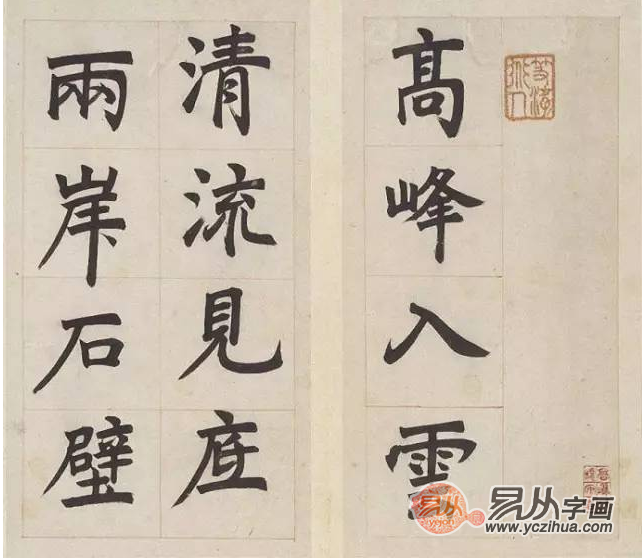 高峰入雲
清流見底
兩岸石壁
易从字画
www.yczihua.com